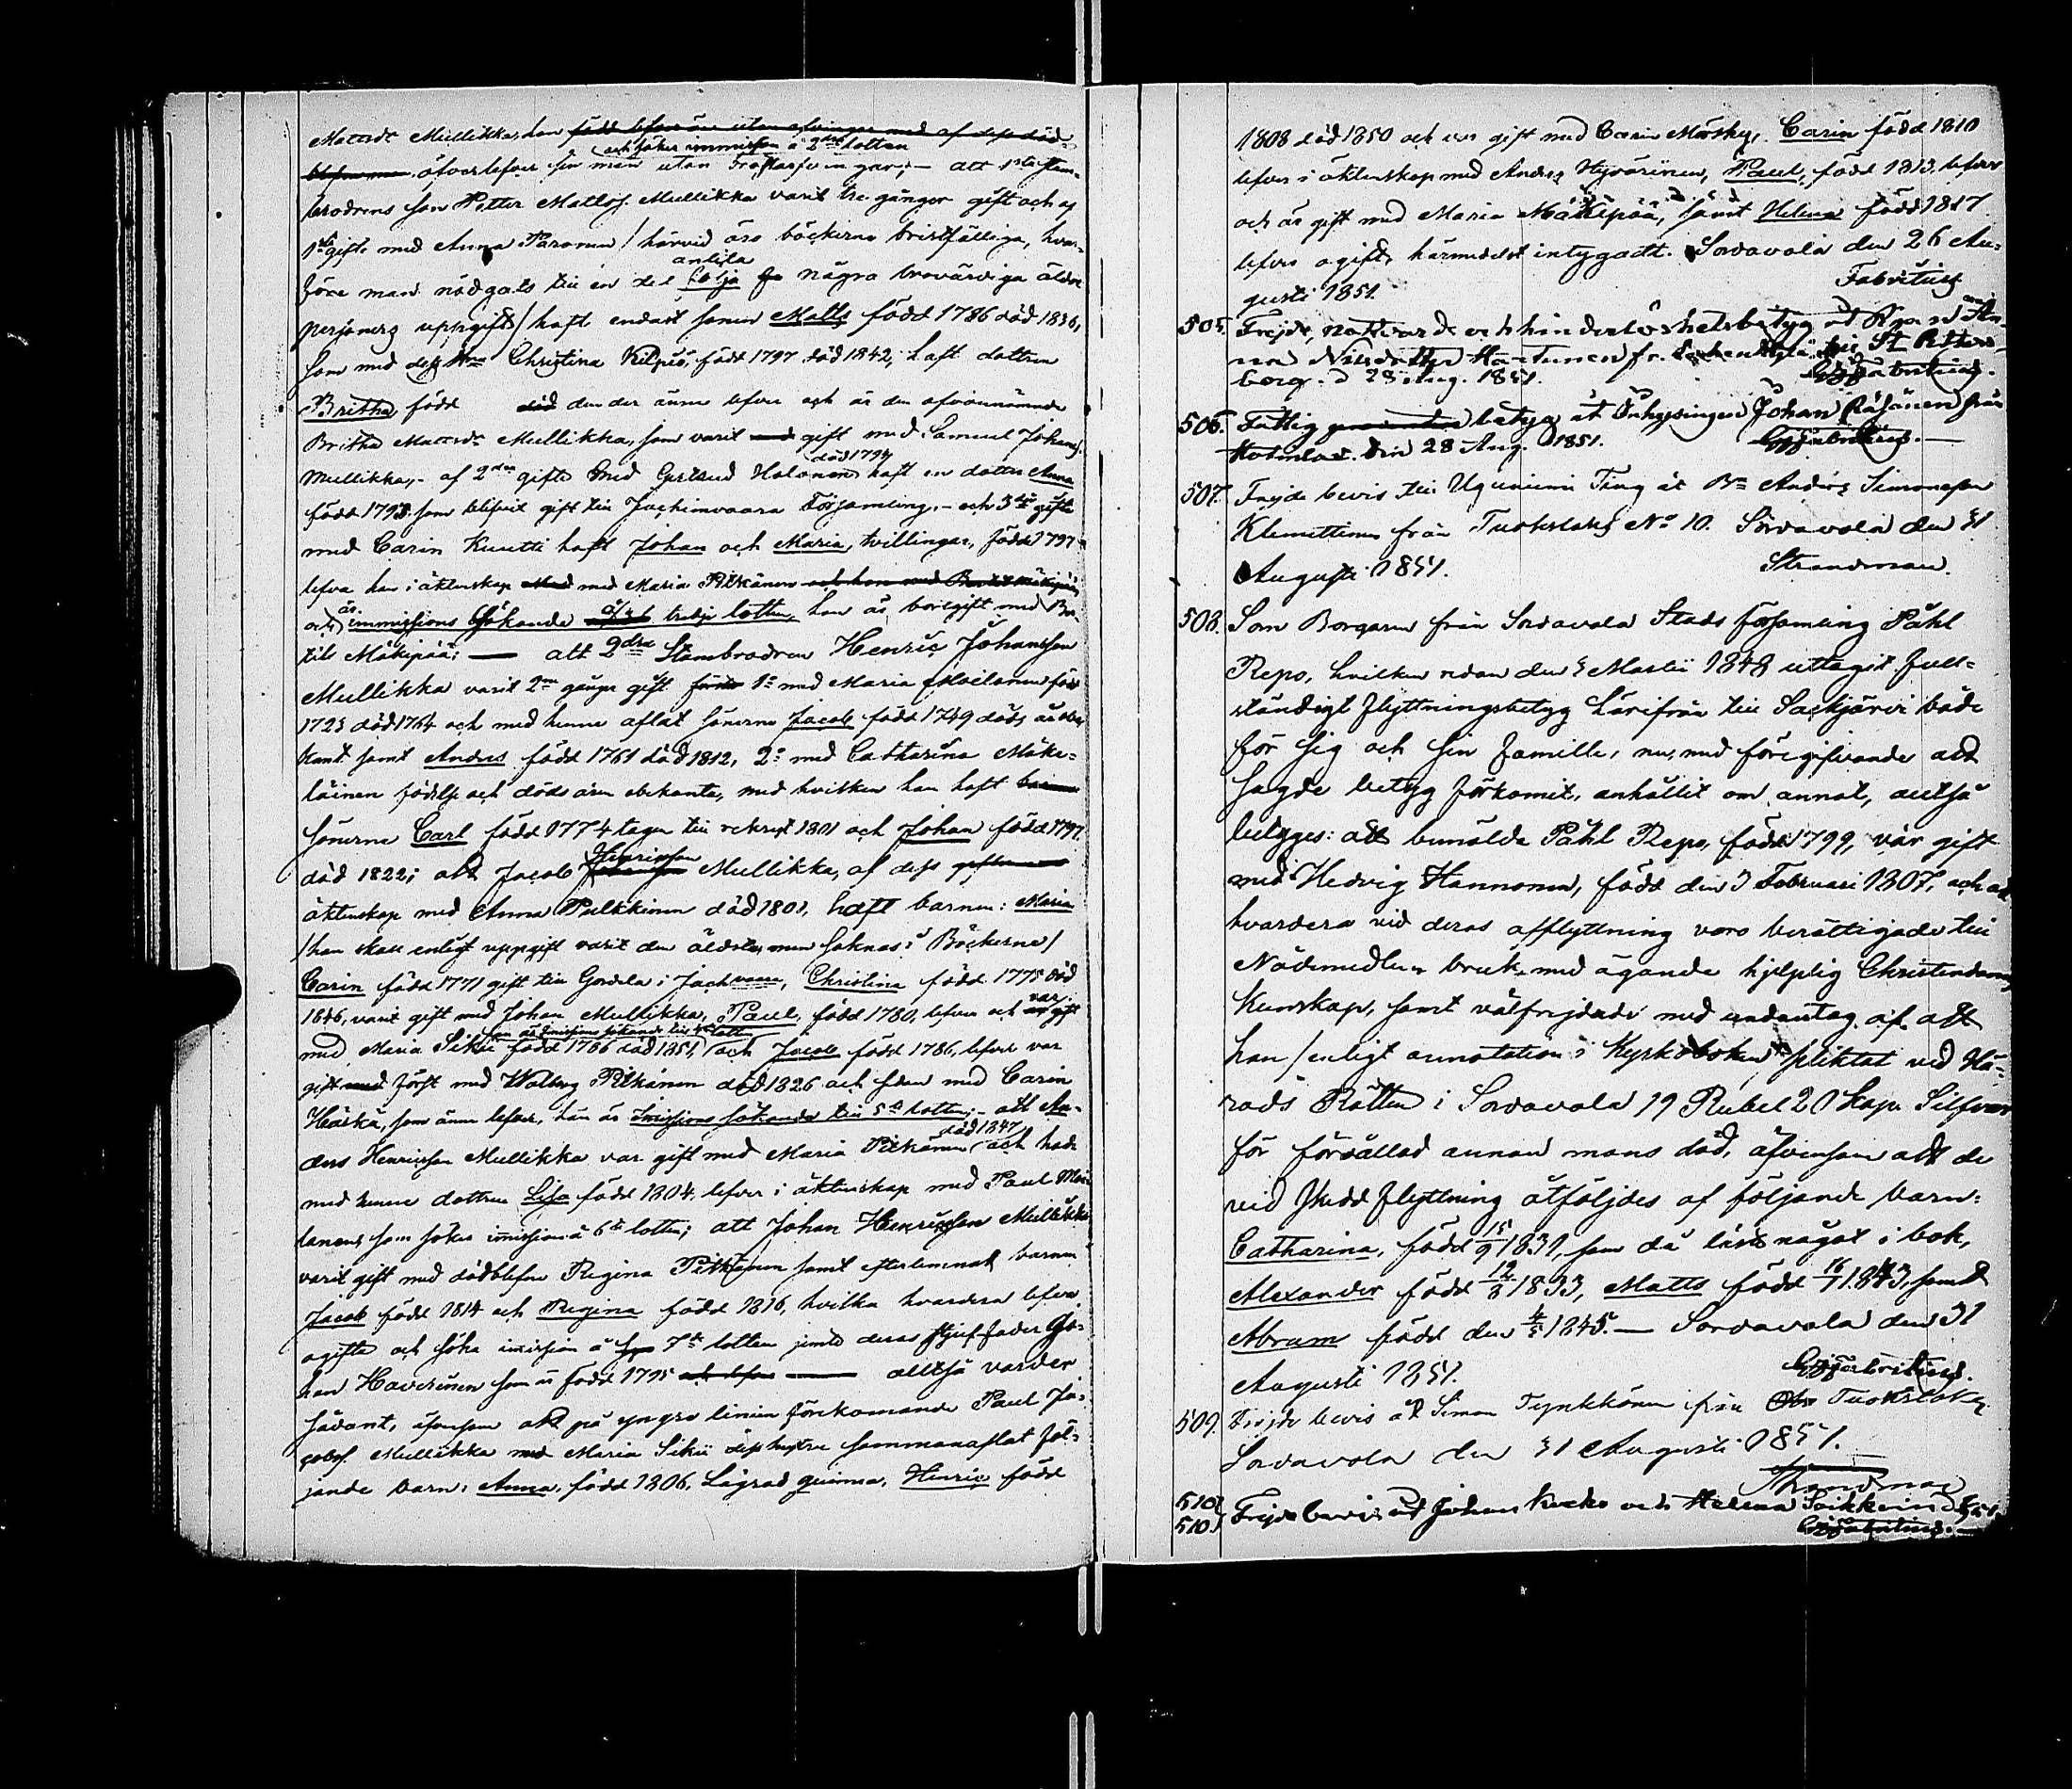 Mattsdr Mullikka, hon född lefver än utan
och söker immission i 2dra lotten
öfverlefver sin man utan bröstarfvingar; – att 1sta Stam-
brodrens son Petter Mattss. Mullikka varit tre gånger gift och af
1sta gifte med Anna Paronen / härvid äro böckerne bristfälliga, hvar-
anlita
före man nödgats till en del följa några trovärdiga äldre
personers uppgift / haft endast sonen Matts född 1786 död 1836,
som med dess Hu Christina Kilpiö, född 1797 död 1842, haft dottren
Britha född död den der ännu lefver och är den ofvannämnde
Britha Mattsdr Mullikka, som varit med gift med Samuel Johans.
död 1794
Mullikka, – af 2dra gifte med Gertrud Halonen haft en dotter Anna
född 1793 som blifvit gift till Jachimvaara Församling, – och 3die gifte
med Carin Kuutti haft Johan och Maria, tvillingar, födde 1797
lefva han i äktenskap med med Maria Pitkänen och hon med
är
och immissions sökande till tredje lotten, hon är bortgift med Ber-
till Mäkipää; — att 2dra Stambrodren Henric Johansson
Mullikka varit 2ne gånger gift förste 1o med Maria Moilanen född
1723 död 1764 och med henne aflat sönerne Jacob född 1749 döds år obe-
kant samt Anders född 1761 död 1812, 2o med Catharina Mäke-
läinen födelse och döds åren obekanta, med hvilken han haft barnen
sönerne Carl född 1774 tagen till rekryt 1801 och Johan född 1797
Henricsson
död 1822; att Jacob Johansson Mullikka, af dess giften med
äktenskap med Anna Pulkkinen död 1801, haft barnen: Maria
/ hon skall enligt uppgift varit den äldste, men saknas i Böckerne /
Carin född 1771 gift till Gordela i Jachvaara, Christina född 1775 död
var
1846, varit gift med Johan Mullikka, Paul, född 1780, lefver och är gift
han är Imissions sökande till 4de lotten
med Maria Sikiö född 1786 död 1851, och Jacob född 1786, lefver var
gift med först med Walborg Pitkänen död 1826 och sedan med Carin
Härkä, som ännu lefver, han är Imissions sökande till 5te lotten; – att An-
död 1847
ders Henricsson Mullikka var gift med Maria Pitkänen och hade
med henne dottren Lisa född 1804, lefver i äktenskap med Paul Moi-
lanen, som söker imission i 6te lotten; att Johan Henricsson Mullikka
varit gift med dödblefne Regina Pitkänen samt efterlemnat barnen
Jacob född 1814 och Regina född 1816, hvilka hvardera lefva
ogifte och söka imission i 7de lotten jemte deras stjuf-fader Jo-
han Haverinen som är född 1795 och lefver alltså varder
sådant, äfvensom att på yngre linien förekomande Paul Ja-
cobs. Mullikka med Maria Sikiö dess hustru sammanaflat föl-
jande barn: Anna, född 1806, Lägrad qvinna, Henric född
1808 död 1850 och var gift med Carin Mörsky, Carin född 1810
lefver i äktenskap med Anders Hyvärinen, Paul, född 1813, lefver
och är gift med Maria Mäkipää, samt Helena född 1817
lefver ogift, härmedelst intygadt. Sordavala den 26 Au-
gusti 1851.
Fabritius
505. Frejde, nattvards och hinderlöshetsbetyg åt Pigan An-
na Nilsdotter Harttunen fr. till St Peters-
borg. d 28 Aug. 1851. Fabritius.
506. Fattig betyg åt Inhysingen Johan Räsänen från
den 28 Aug. 1851. Fabritius. —
507. Frejde bevis till Uguniemi Ting åt Bn Anders Simonsson
Klemettinen från Tuokslaks No 10. Sordavala den 31
Augusti 1851. Strandman.
508. Som Borgaren från Sordavala Stads församling Påhl
Repo, hvilken redan den 5 Martii 1848 uttagit full-
ständigt flyttningsbetyg härifrån till Sackjärvi både
för sig och sin famille, nu, med föregifvande att
sagde betyg förkomit, anhållit om annat, alltså
betygas: att bemälde Påhl Repo, född 1799, var gift
med Hedvig Hannonen, född den 3 Februari 1807, och att
hvardera vid deras afflyttning varo berättigade till
Nådemedlens bruk, med ägande hjelplig Christendoms
Kunskap, samt välfrejdade med undantag af att
han / enligt annotation i Kyrkoboken / pliktat vid Hä-
rads Rätten i Sordavala 19 Rubel 20 Kop. Silfver
för förvållad annan mans död, äfvensom att de
vid skedd flyttning åtföljdes af följande barn:
Catharina, född 15/9 1831, som då läste något i bok,
Alexander född 12/8 1833, Matts född 16/7 1843, samt
Abram född den 4/5 1845. — Sordavala den 31
Augusti 1851. Fabritius.
509. Frejde bevis åt Simon Tynkkönen från Tuokslaks
Sordavala den 31 Augusti 1851.
Strandman
510. Frejde bevis åt Johan Kucko och Helena
510. Fabritius. —